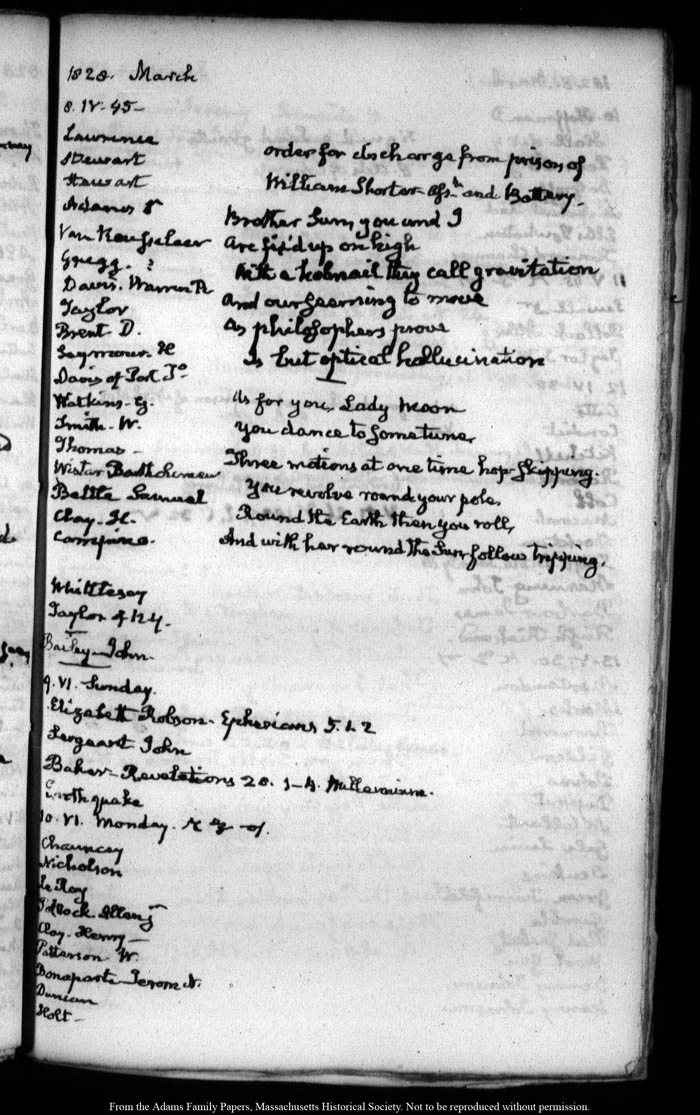 1828. March
8. IV. 45 -
Lawrence
Stewart
Stewart
order for discharge from prison of
William Shorter Ass.lt and Battery.
Adams
Van Rensselaer
Gregg. ?
Davis. Warren R
Taylor
Brent D.
Seymour. H
Davis of Port To.
Watkins. G.
Smith. W.
Thomas -
Wister Bartholomew
Battle Samuel
Clay. H.
Brother Sun, you and I
Are fix'd up on high
With a hobnail they call gravitation
And our seeming to move
As philosophers prove
Is but optical hallucination
As for you, Lady Moon
You dance to some tune,
Three motions at one time hop-skipping.
You revolve round your pole,
Round the Earth then you roll,
And with her round the Sun follow tripping.
Whittlesey
Taylor of N.Y.
Bailey John.
9. VI. Sunday.
Elizabeth Robson. Ephesians 5. 1. 2
Sergeant John
Baker - Revelations 20. 1-4. Millennium.
Earthquake
10. VI. Monday.
Chauncey
Nicholson
Le Roy
Clay. Henry -
Patterson W.
Bonaparte Jerome N.
Duncan
Holt -
From the Adams Family Papers, Massachusetts Historical Society. Not to be reproduced without permission.